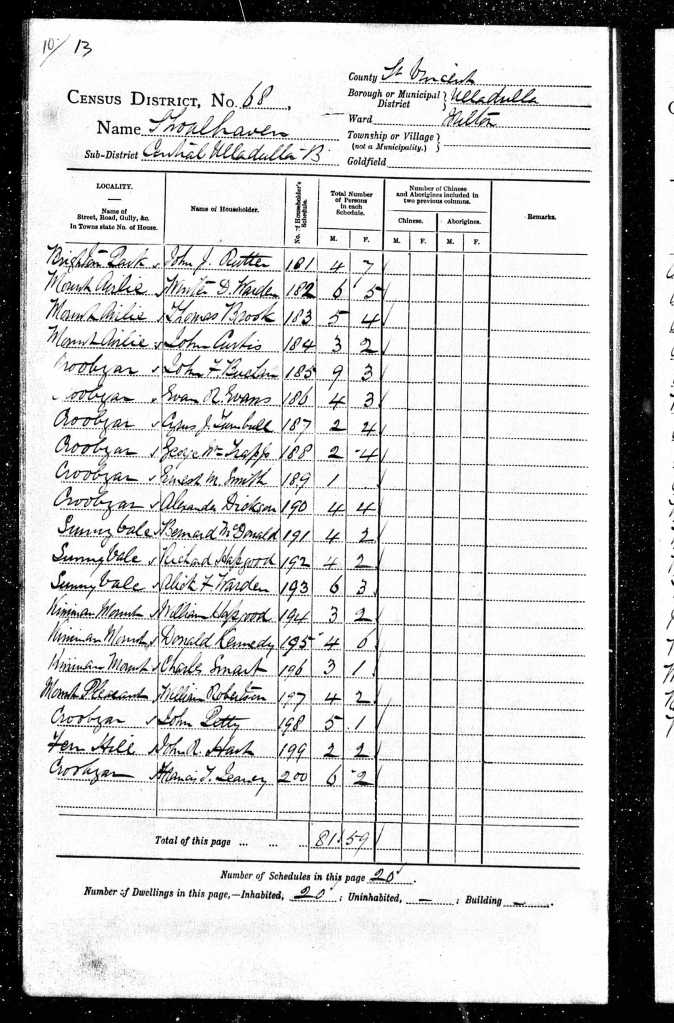 10/ 13
County St Vincent
CENSUS DISTRICT, NO. 68
Borough or Municipal District } Ulladulla
Name Shoalhaven
Ward Milton
Township or Village (not a Municipality.) }
SUB-DISTRICT Central Ulladulla B
Goldfield
LOCALITY. Name of Street, Road, Gully, &c. In Towns state No. of House.
Name of Householder.
No. of Householder's Schedule.
Total Number of Persons in each Schedule.
Number of Chinese and Aborigines included in two previous columns.
Remarks.
Chinese. Aborigines.
M. F. M. F. M. F.
John J. Rutter 181 4 7
Mount Airlie D. Warden 182 6 5
Mount Airlie Thomas Brook 183 5 4
Mount Airlie John Curtis 184 3 2
Croobyar John F 185 9 3
Croobyar Evan R. Evans 186 4 3
Croobyar Cyrus J. Turnbull 187 2 4
Croobyar George Wm Trapp 188 2 4
Croobyar Ernest M. Smith 189 1
Croobyar Alexander Dickson 190 4 4
Sunny Vale Bernard McDonald 191 4 2
Sunny Vale Richard Hapgood 192 4 2
Sunny Vale Alick F Warden 193 6 3
Mount William Hapgood 194 3 2
Mount Donald Kennedy 195 4 0
Mount Charles Smart 196 3 1
Mount Pleasant William Robertson 197 4 2
Croobyar John Petty 198 5 1
Fern Hill John R. Hart 199 2 2
Croobyar 200 6 2
Total of this page ... ... ... 81 59
Number of Schedules in this page 20.
Number of Dwellings in this page,—Inhabited, 20; Uninhabited, —; Building —.